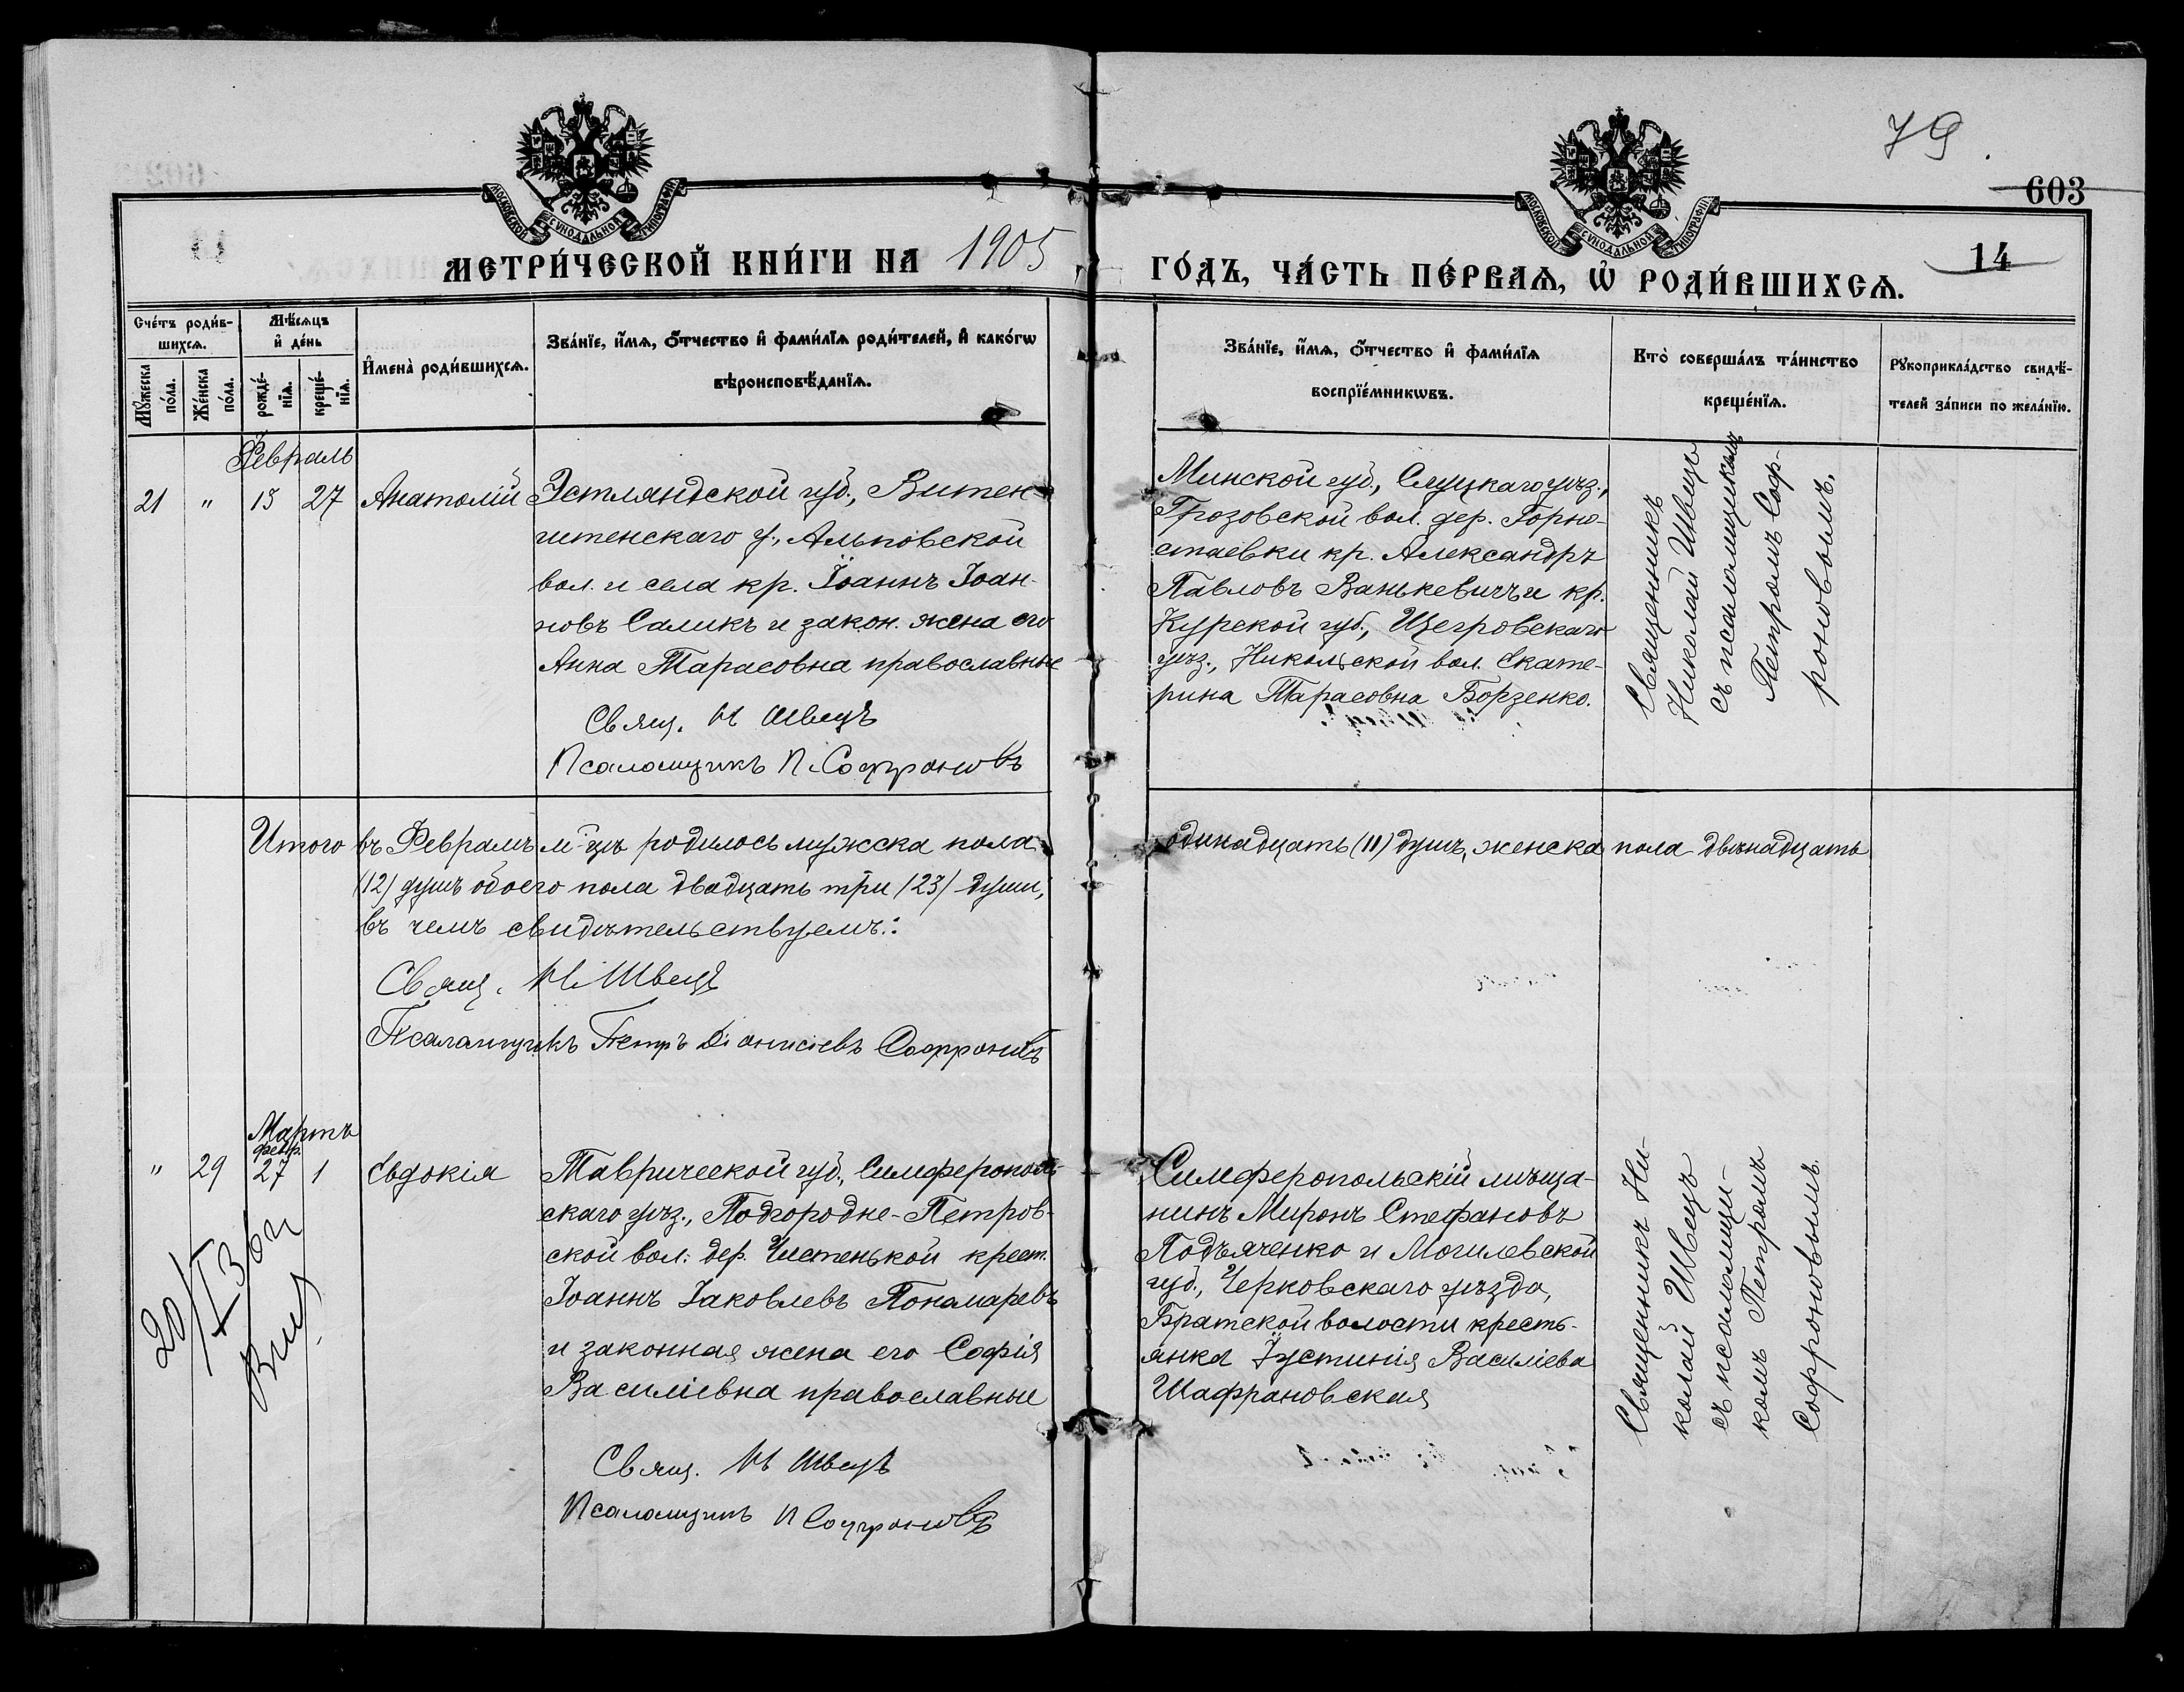 79.
603
14
МОСКОВСКОЙ СѴНОДАЛЬНОЙ ТИПОГРАФІИ
МОСКОВСКОЙ СѴНОДАЛЬНОЙ ТИПОГРАФІИ
МЕТРИ́ЧЕСКОЙ КНИ́ГИ НА 1905 ГО́ДЪ, ЧА́СТЬ ПЕ́РВАѦ, Ѡ҆ РОДИ́ВШИХСѦ.
Сче́тъ роди́в-
шихсѧ.
Мꙋ́жеска по́ла.
Же́нска по́ла.
Мѣ́сѧцъ и҆ де́нь
рожде́-нїѧ.
креще́-нїѧ.
И҆мена̀ роди́вшихсѧ.
Зва́нїе, и҆́мѧ, ѻ҆́тчество и҆ фами́лїѧ роди́телей, и҆ како́гѡ
вѣроисповѣ́данїѧ.
Зва́нїе, и҆́мѧ, ѻ҆́тчество и҆ фами́лїѧ
воспрїе́мникѡвъ.
Кто̀ соверша́лъ та́инство
креще́нїѧ.
Рꙋкоприкла́дство свидѣ́-
телей за́писи по жела́нїю.
Февраль
21 " 15 27 Анатолій
Эстляндской губ., Витен-
штенскаго у., Альповской
вол. и села кр. Іоаннъ Іоан-
новъ Саликъ и закон. жена его
Анна Тарасовна православные
Свящ. Н Швецъ
Псаломщикъ П. Софроновъ
Минской губ., Слуцкаго уѣз.,
Грозовской вол. дер. Горно-
стаевки кр. Александръ
Павловъ Ванькевичъ и кр.
Курской губ., Щегровскаго
уѣз., Никольской вол. Екате-
рина Тарасовна Борзенко.
Священникъ
Николай Швецъ
съ псаломщикомъ
Петромъ Соф-
роновымъ.
Итого въ Февралѣ м-цѣ родилось мужска пола одинадцать (11) душъ, женска пола двѣнадцать
(12) душъ обоего пола двадцать три (23) души,
въ чемъ свидѣтельствуемъ:
Свящ. Н. Швецъ
Псаломщикъ Петръ Діонисіевъ Софроновъ
Мартъ
февр.
" 29 27 1 Евдокія
20/I 36 г
Таврической губ., Симферополь-
скаго уѣз., Подгородне-Петров-
ской вол. дер. Чистенькой крест.
Іоаннъ Іаковлевъ Пономаревъ
и законная жена его Софія
Василіевна православные
Свящ. Н Швецъ
Псаломщикъ П Софроновъ
Симферопольскій мѣща-
нинъ Миронъ Стефановъ
Подъяченко и Могилевской
губ., Черковскаго уѣзда,
Братской волости кресть-
янка Іустинія Василіева
Шафрановская
Священникъ Ни-
колай Швецъ
съ псаломщи-
комъ Петромъ
Софроновымъ.